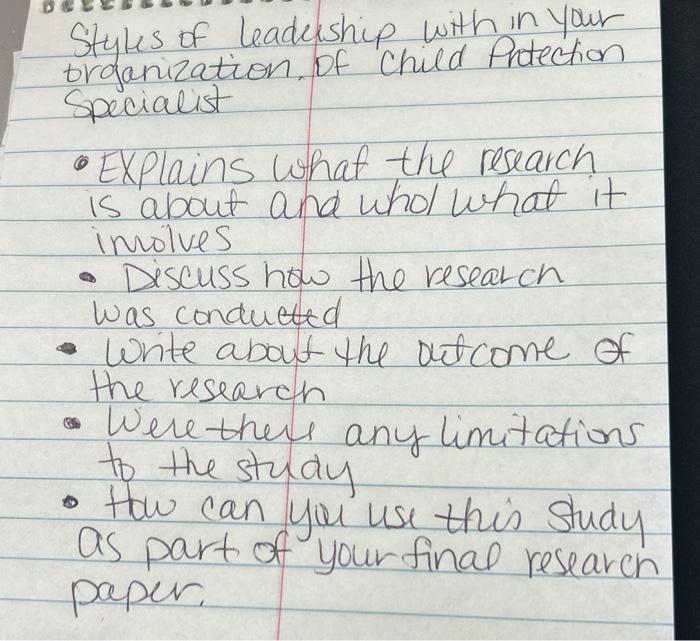 Styles of leadership with in your
organization. Of Child Protection
Specialist
• Explains what the research
is about and who/what it
involves
• Discuss how the research
was conducted
• Write about the outcome of
the research
• Were there any limitations
to the study
• How can you use this study
as part of your final research
paper.